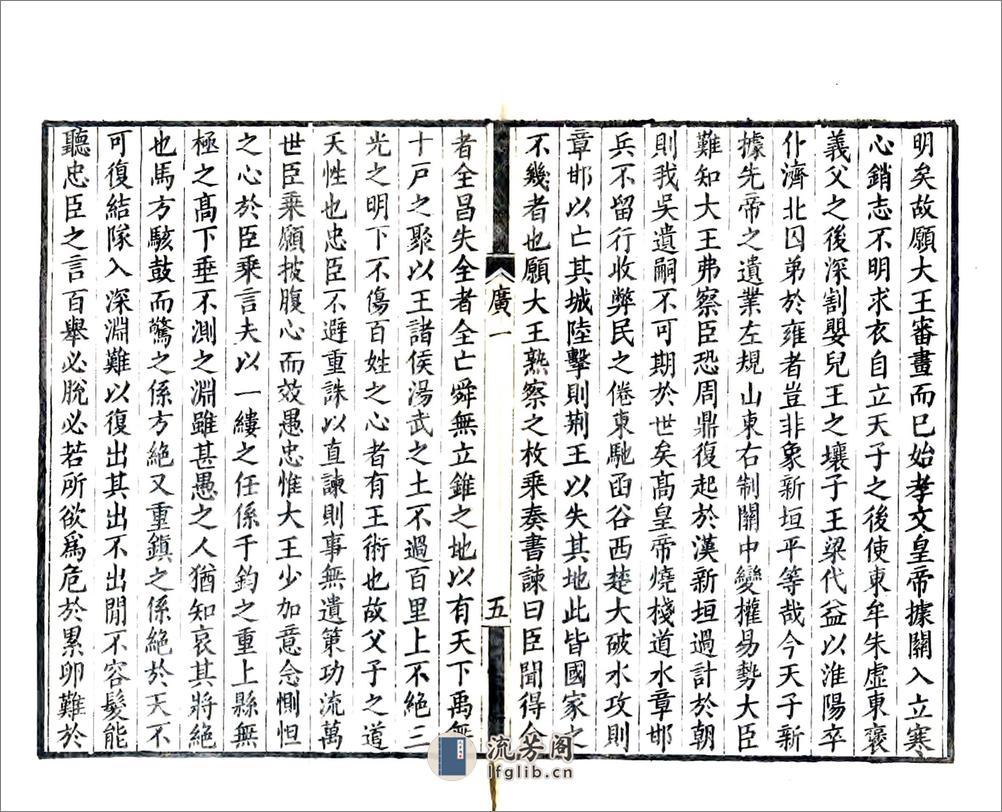 明矣故願大王審畫而已始孝文皇帝據關入立寒
心銷志不明求衣自立天子之後使東牟朱虛東襃
義父之後深割嬰兒王之壤子王梁代益以淮陽卒
仆濟北囚弟於雍者豈非象新垣平等哉今天子新
據先帝之遺業左規山東右制關中變權易勢大臣
難知大王弗察臣恐周鼎復起於漢新垣過計於朝
則我吳遺嗣不可期於世矣高皇帝燒棧道水章邯
兵不留行收弊民之倦東馳函谷西楚大破水攻則
章邯以亡其城陸擊則荆王以失其地此皆國家之
不幾者也願大王熟察之枚乘奏書諫曰臣聞得全
廣一
五
者全昌失全者全亡舜無立錐之地以有天下禹無
十戸之聚以王諸侯湯武之土不過百里上不絕三
光之明下不傷百姓之心者有王術也故父子之道
天性也忠臣不避重誅以直諫則事無遺策功流萬
世臣乘願披腹心而效愚忠惟大王少加意念惻怛
之心於臣乘言夫以一縷之任係千鈞之重上縣無
極之高下垂不測之淵雖甚愚之人猶知哀其將絕
也馬方駭鼓而驚之係方絕又重鎮之係絕於天不
可復結隊入深淵難以復出其出不出閒不容髮能
聽忠臣之言百舉必脫必若所欲爲危於累卵難於
流芳閣
lfglib.cn